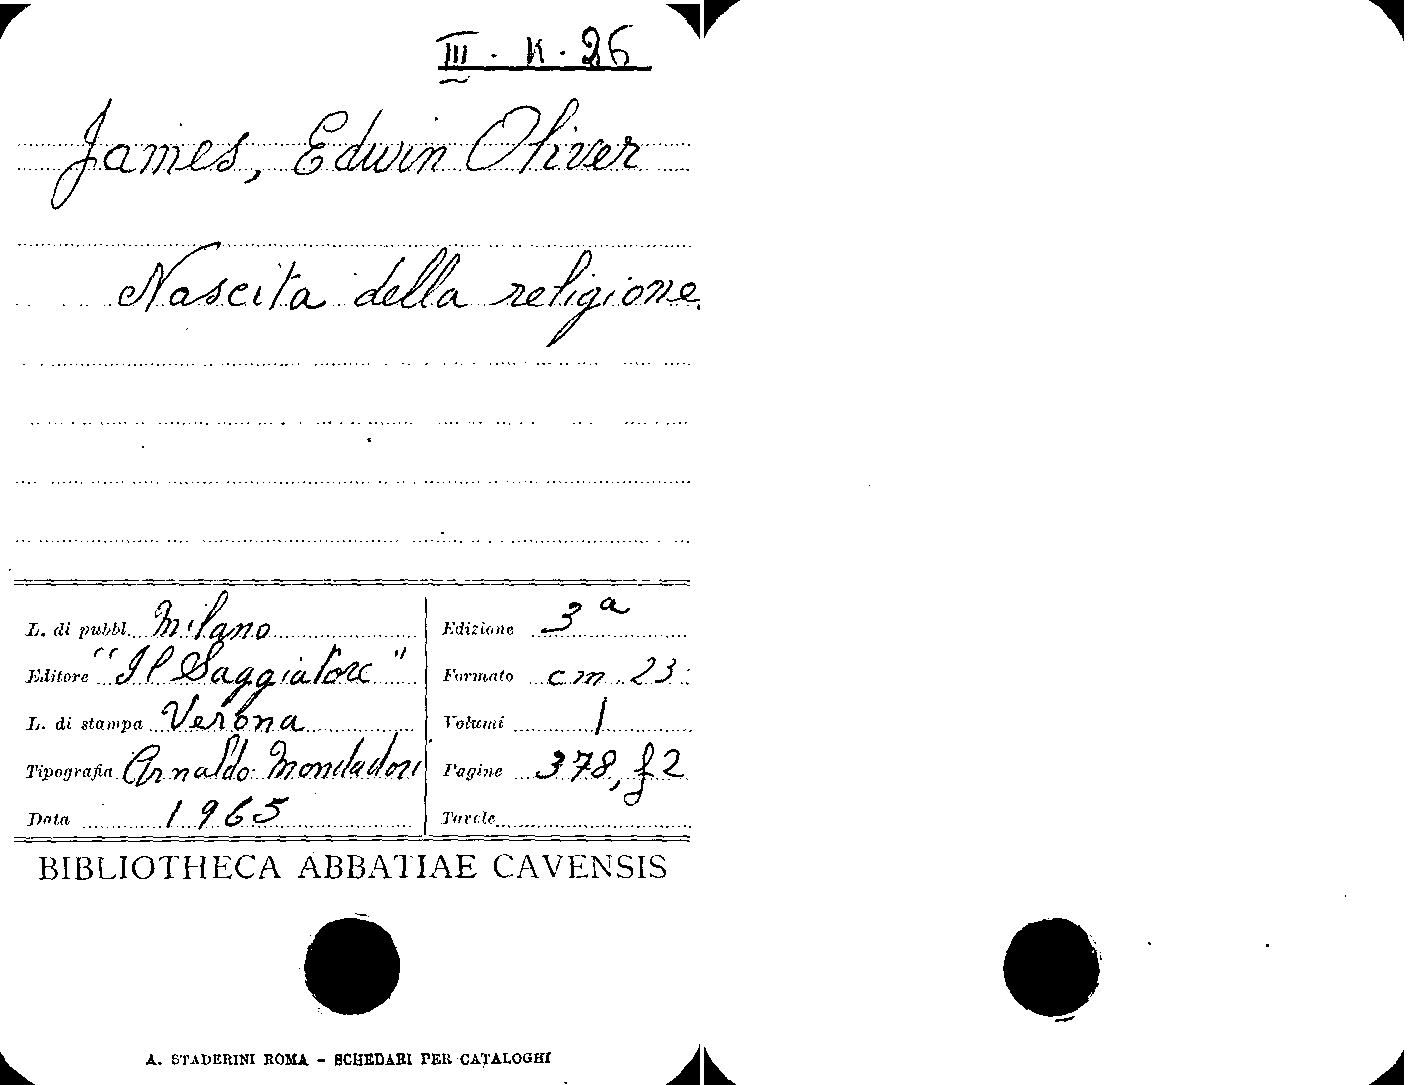 III. K. 26
James, Edwin Oliver
Nascita della religione.
L. di pubbl. Milano
Editore "Il Saggiatore"
L. di stampa Verona
Tipografia Arnaldo Mondadori
Data 1965
Edizione 3ª
Formato cm. 23
Volumi 1
Pagine 378, f2
Tavole
BIBLIOTHECA ABBATIAE CAVENSIS
A. STADERINI ROMA - SCHEDARI PER CATALOGHI